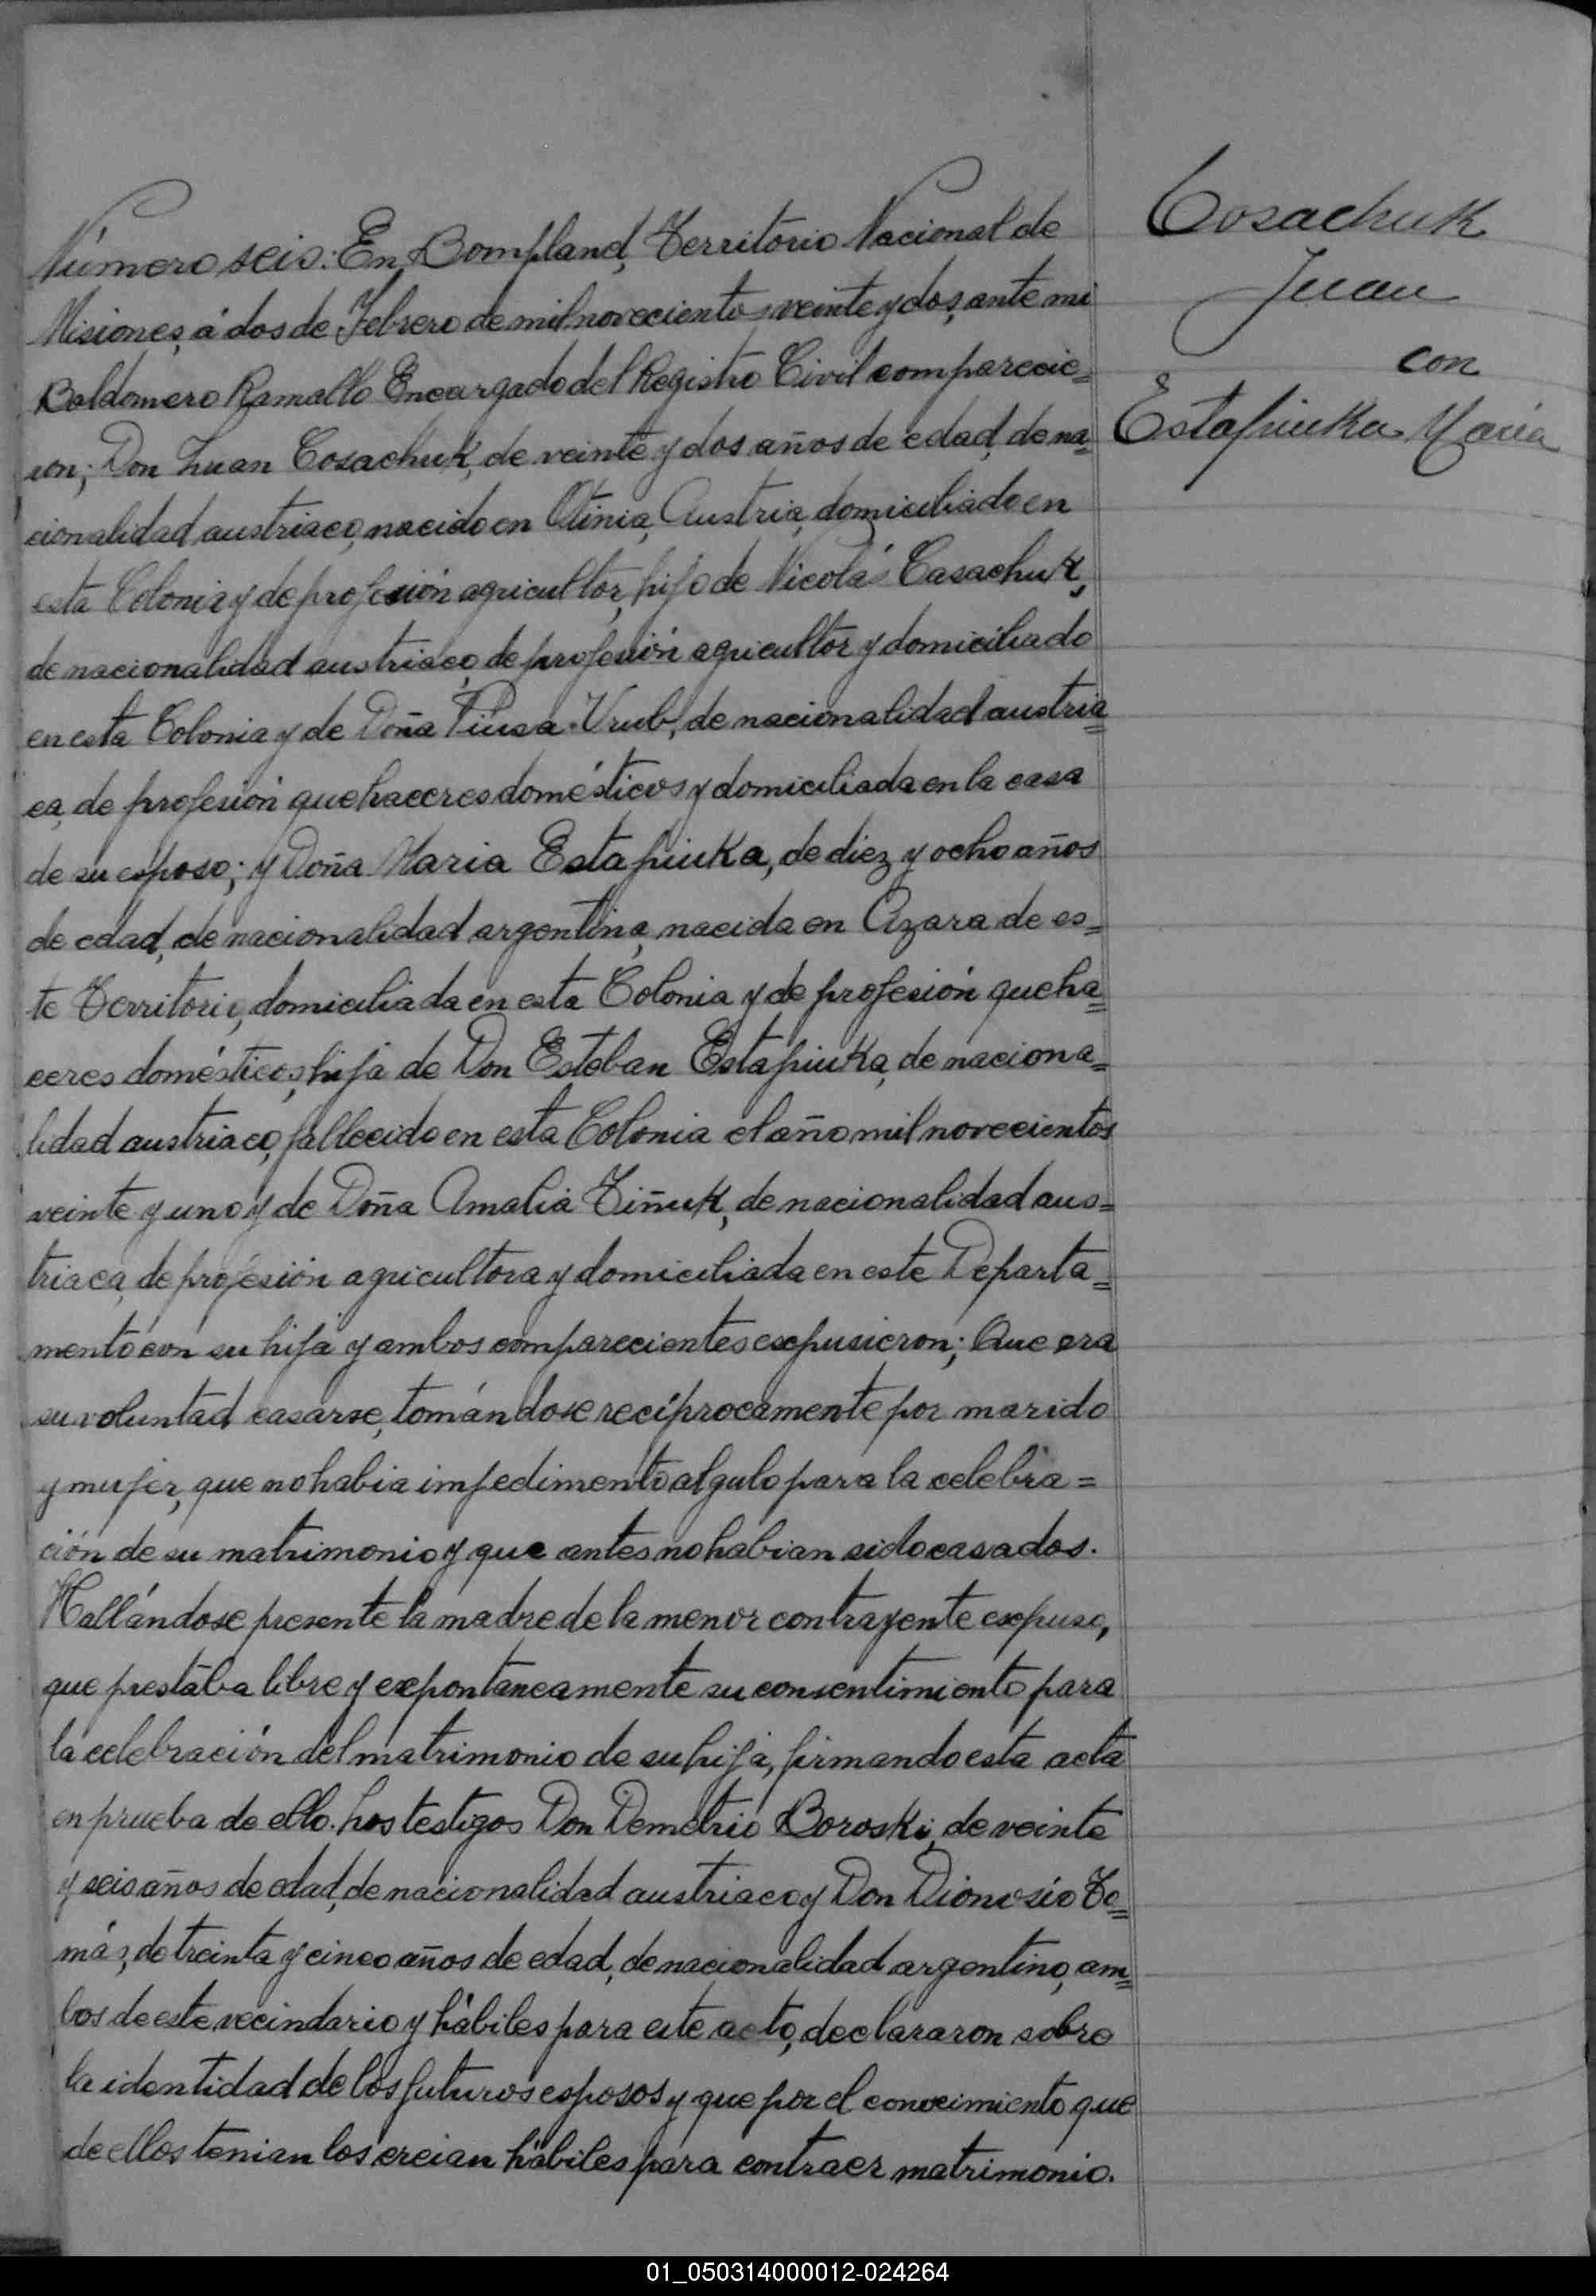 Cosachuk
Juan
con
Estapiuka María
Número seis: En Bompland, Territorio Nacional de
Misiones, á dos de Febrero de mil novecientos veinte y dos, ante mi
Baldomero Ramallo Encargado del Registro Civil comparecie=
ron; Don Juan Cosachuk, de veinte y dos años de edad, de na=
cionalidad austriaco, nacido en Otinia, Austria, domiciliado en
esta Colonia y de profesión agricultor, hijo de Nicolás Casachuk,
de nacionalidad austriaco, de profesión agricultor y domiciliado
en esta Colonia y de Doña Vrub, de nacionalidad austria=
ca, de profesión quehaceres domésticos y domiciliada en la casa
de su esposo; y Doña Maria Estapiuka, de diez y ocho años
de edad, de nacionalidad argentina, nacida en Azara de es=
te Territorio, domiciliada en esta Colonia y de profesión queha=
ceres domésticos, hija de Don Esteban Estapiuka, de naciona=
lidad austriaco, fallecido en esta Colonia el año mil novecientos
veinte y uno y de Doña Amalia Tiñuk, de nacionalidad aus=
triaca, de profesión agricultora y domiciliada en este Departa=
mento con su hija y ambos comparecientes expusieron; Que era
su voluntad casarse, tomándose recíprocamente por marido
y mujer, que no habia impedimento algulo para la celebra=
ción de su matrimonio y que antes no habian sido casados.
Hallándose presente la madre de la menor contrayente expuso,
que prestaba libre y expontaneamente su consentimiento para
la celebración del matrimonio de su hija, firmando esta acta
en prueba de ello. Los testigos Don Demetrio Boroski, de veinte
y seis años de edad, de nacionalidad austriaco y Don Dionosio To=
más, de treinta y cinco años de edad, de nacionalidad argentino, am=
bos de este vecindario y hábiles para este acto, declararon sobre
la identidad de los futuros esposos y que por el conocimiento que
de ellos tenian los creian hábiles para contraer matrimonio.
01_050314000012-024264